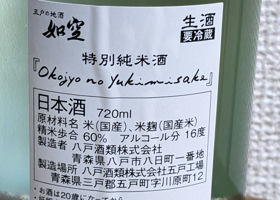 五戸の地酒
如空
生酒
要冷蔵
特別純米酒
『Okojyo no Yukimisake』
日本酒 720ml
原材料名 米(国産)、米麹(国産米)
精米歩合 60% アルコール分 16度
製造者 八戸酒類株式会社
青森県八戸市八日町一番地
製造場所 八戸酒類株式会社五戸工場
青森県三戸郡五戸町字川原町12
・お酒は20歳になってから